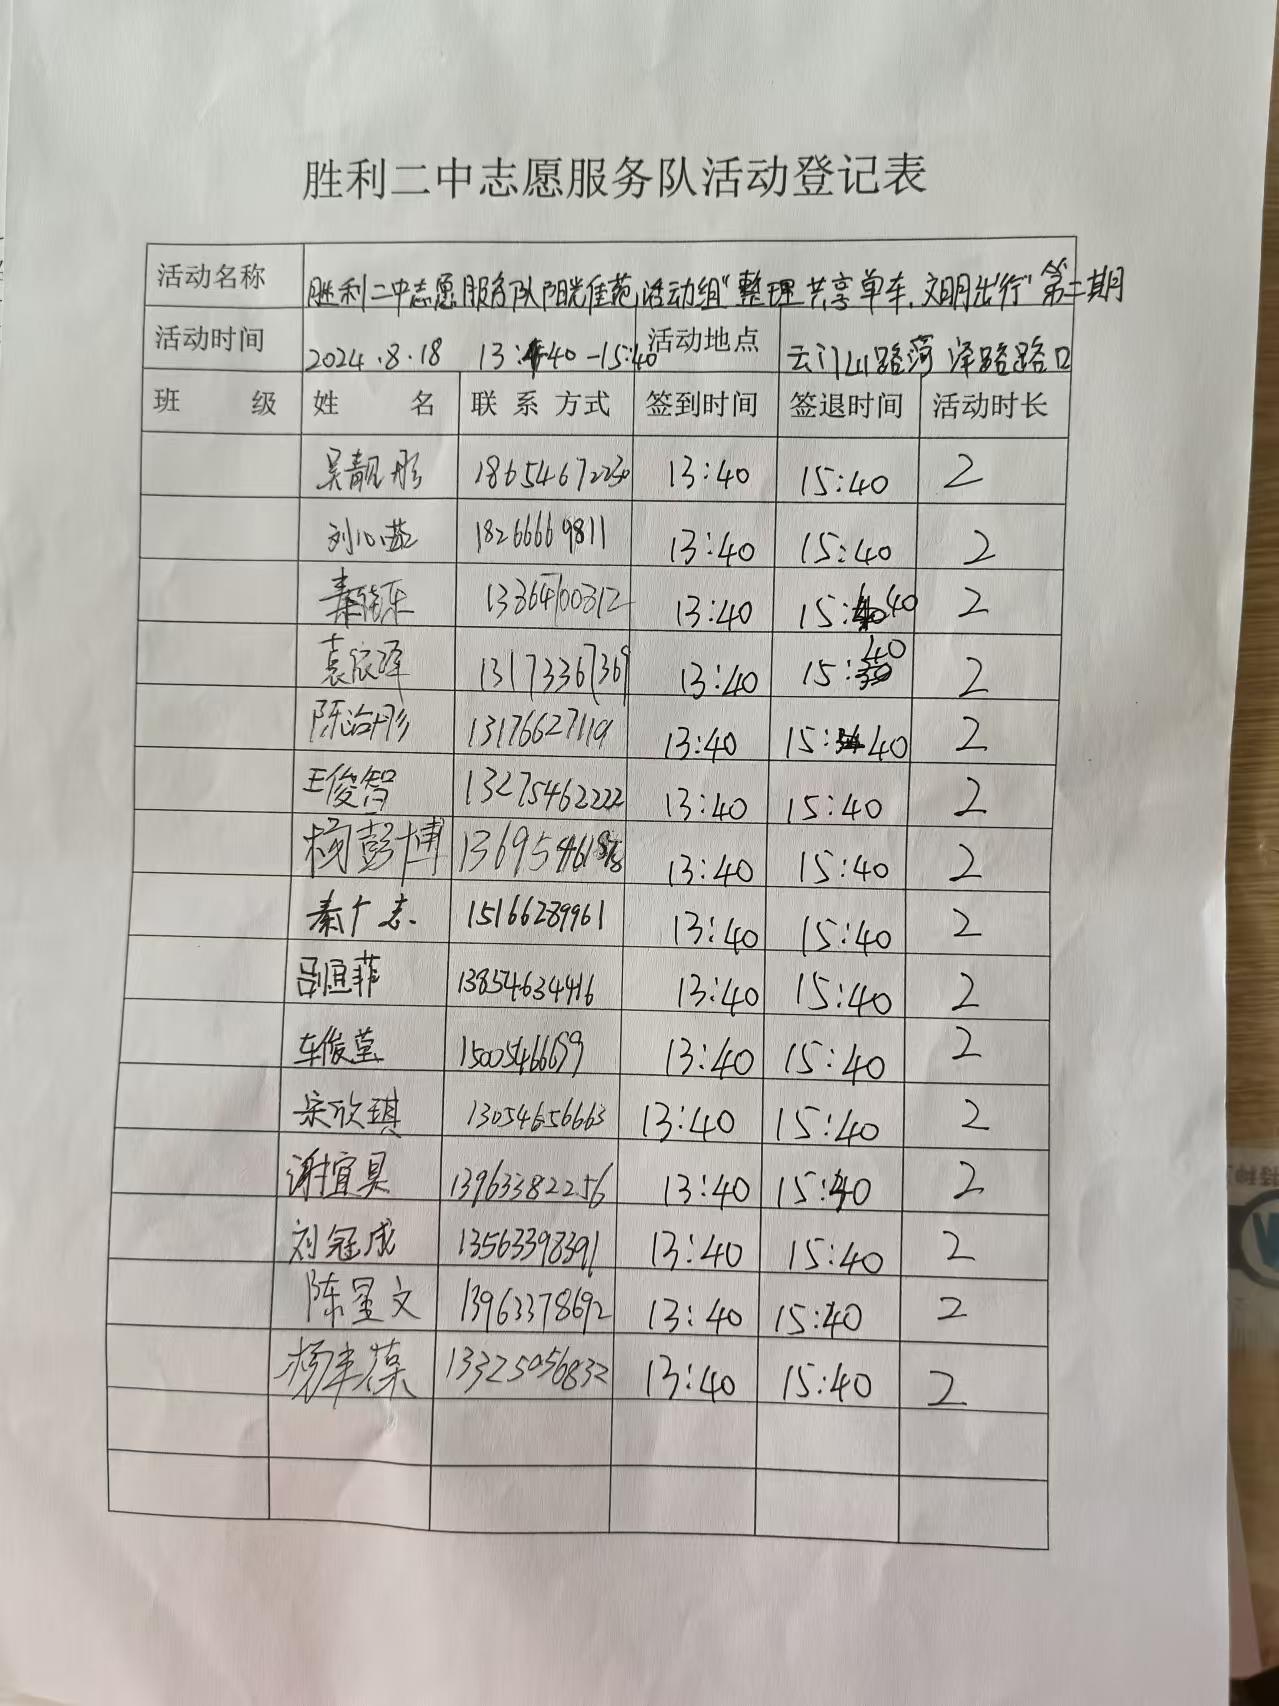 胜利二中志愿服务队活动登记表
活动名称 胜利二中志愿服务队阳光佳苑活动组“整理共享单车,文明出行”第二期
活动时间 2024.8.18 13:40-15:40 活动地点 云门山路菏泽路路口
班 级 姓 名 联系方式 签到时间 签退时间 活动时长
吴靓彤 18654672230 13:40 15:40 2
刘心茹 18266669811 13:40 15:40 2
秦 13864700312 13:40 15:40 2
袁依泽 13173367369 13:40 15:40 2
陈治彤 13176627119 13:40 15:40 2
王俊智 13275462222 13:40 15:40 2
杨彭博 13:40 15:40 2
秦广志 15166289961 13:40 15:40 2
吕宜菲 13854634416 13:40 15:40 2
车俊莹 15005466659 13:40 15:40 2
宋欣琪 13054656663 13:40 15:40 2
谢宜具 13963382256 13:40 15:40 2
刘冠成 13563398391 13:40 15:40 2
陈星文 13963378692 13:40 15:40 2
杨丰葆 13325056832 13:40 15:40 2